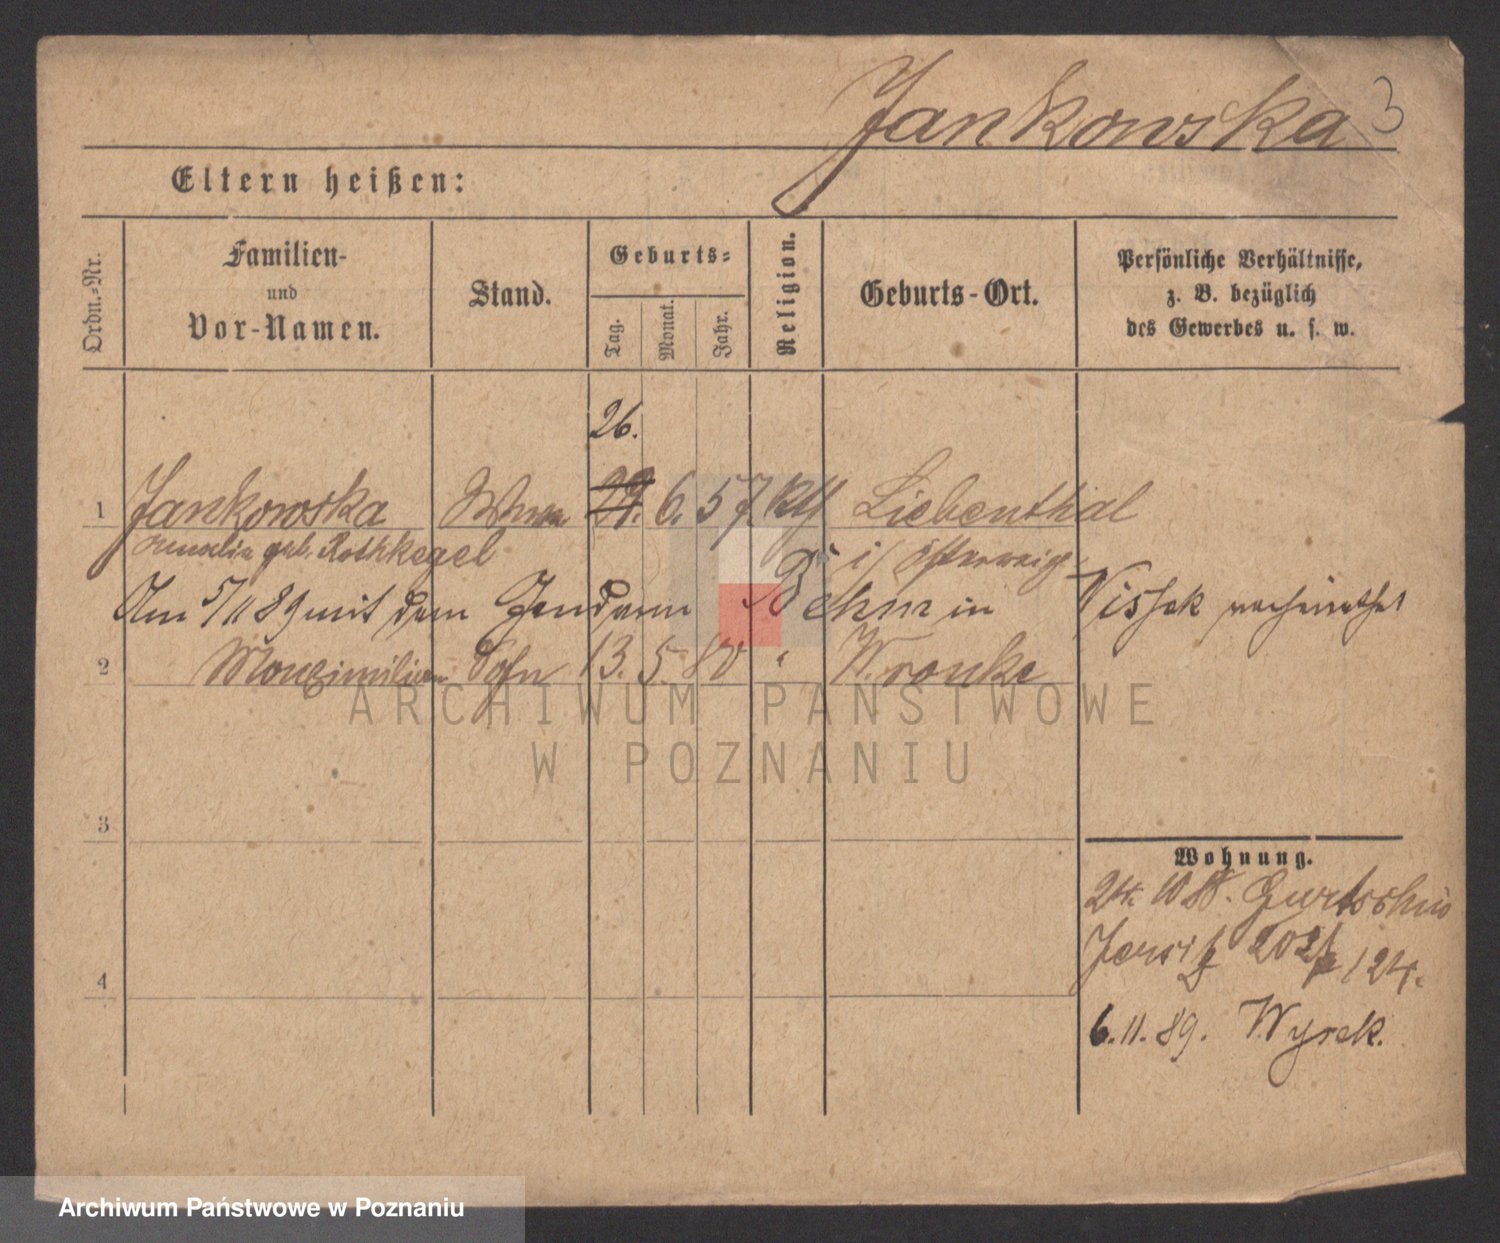 Jankowska 3
Eltern heißen:
Ordn.-Nr.
Familien-
und
Vor-Namen.
Stand.
Geburts-
Tag.
Monat.
Jahr.
Religion.
Geburts-Ort.
Persönliche Verhältnisse,
z. B. bezüglich
des Gewerbes u. s. w.
26.
1 Jankowska 6. 57 kth Liebenthal
geb. Rothkegel i/
Am 5/11 89 mit dem Gendarm Böhm in Wissek verheirathet
2 Maximilian Sohn 13. 5. 80 " Wronke
ARCHIWUM PAŃSTWOWE
W POZNANIU
3
Wohnung.
Gurtschin
4
Jersitz 202 / 124.
6.11.89. Wyrek.
Archiwum Państwowe w Poznaniu